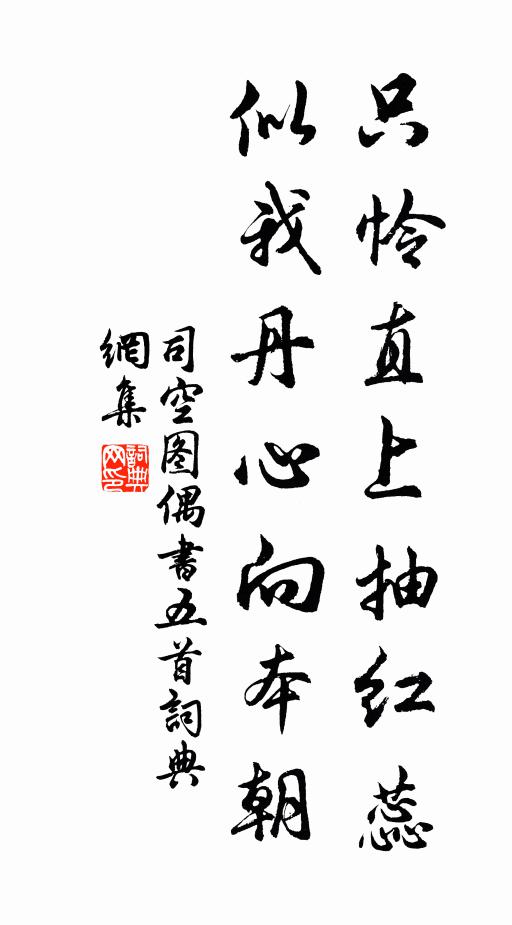 只怜直上抽红蕊
似我丹心向本朝
司空图偶書五首詞典
網集
詞典
网印